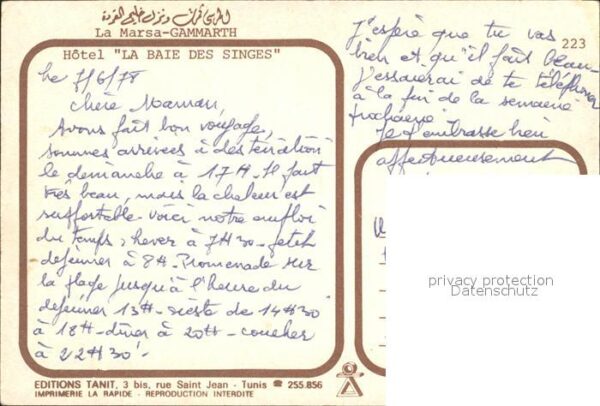 La Marsa-GAMMARTH
Hôtel "LA BAIE DES SINGES"
le 7/6/78
Chère Maman,
Avons fait bon voyage,
sommes arrivées à destination
le dimanche à 17H - Il fait
très beau, mais la chaleur est
supportable - voici notre emploi
du temps : lever à 7H30 - petit
déjeuner à 8H - Promenade sur
la plage jusqu'à l'heure du
déjeuner 13H - sieste de 14H30
à 18H - dîner à 20H - coucher
à 22H30 -
EDITIONS TANIT, 3 bis, rue Saint Jean - Tunis ☎ 255.856
IMPRIMERIE LA RAPIDE - REPRODUCTION INTERDITE
223
J'espère que tu vas
bien et qu'il fait beau -
J'essaierai de te téléphoner
à la fin de la semaine
prochaine
Je t'embrasse bien
affectueusement
privacy protection
Datenschutz